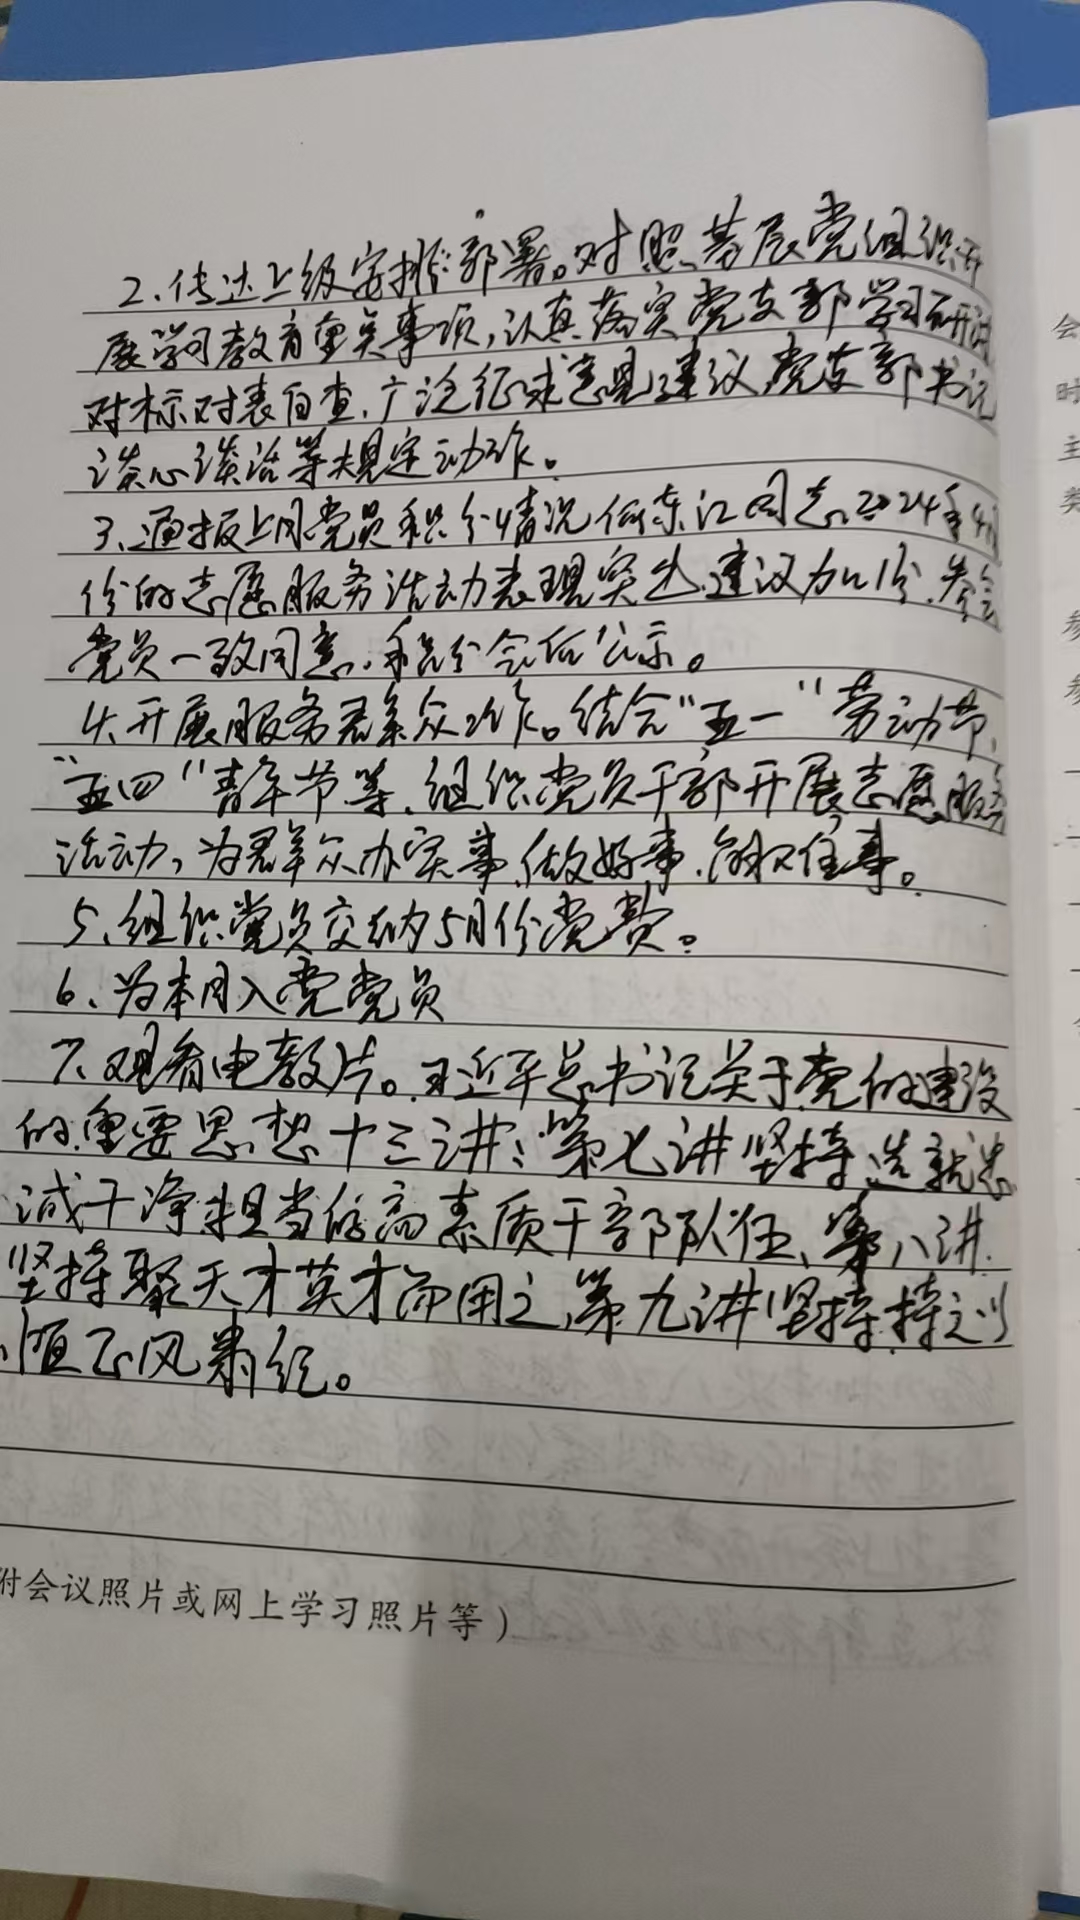 2、传达上级安排部署。对照基层党组织开
展学习教育重点事项，认真落实党支部学习研讨
对标对表自查、广泛征求意见建议、党支部书记
谈心谈话等规定动作。
3、通报上月党员积分情况 何东江同志2024年4月
份的志愿服务活动表现突出、建议加1分、参会
党员一致同意、积分会后公示。
4、开展服务群众工作。结合"五一"劳动节、
"五四"青年节等、组织党员干部开展志愿服务
活动，为群众办实事、做好事、解难事。
5、组织党员交纳5月份党费。
6、为本月入党党员
7、观看电教片。习近平总书记关于党的建设
的重要思想十三讲：第七讲坚持造就忠
诚干净担当的高素质干部队伍、第八讲
坚持聚天才英才而用之、第九讲坚持持之以
恒正风肃纪。
附会议照片或网上学习照片等）
会
时
主
类
参
参